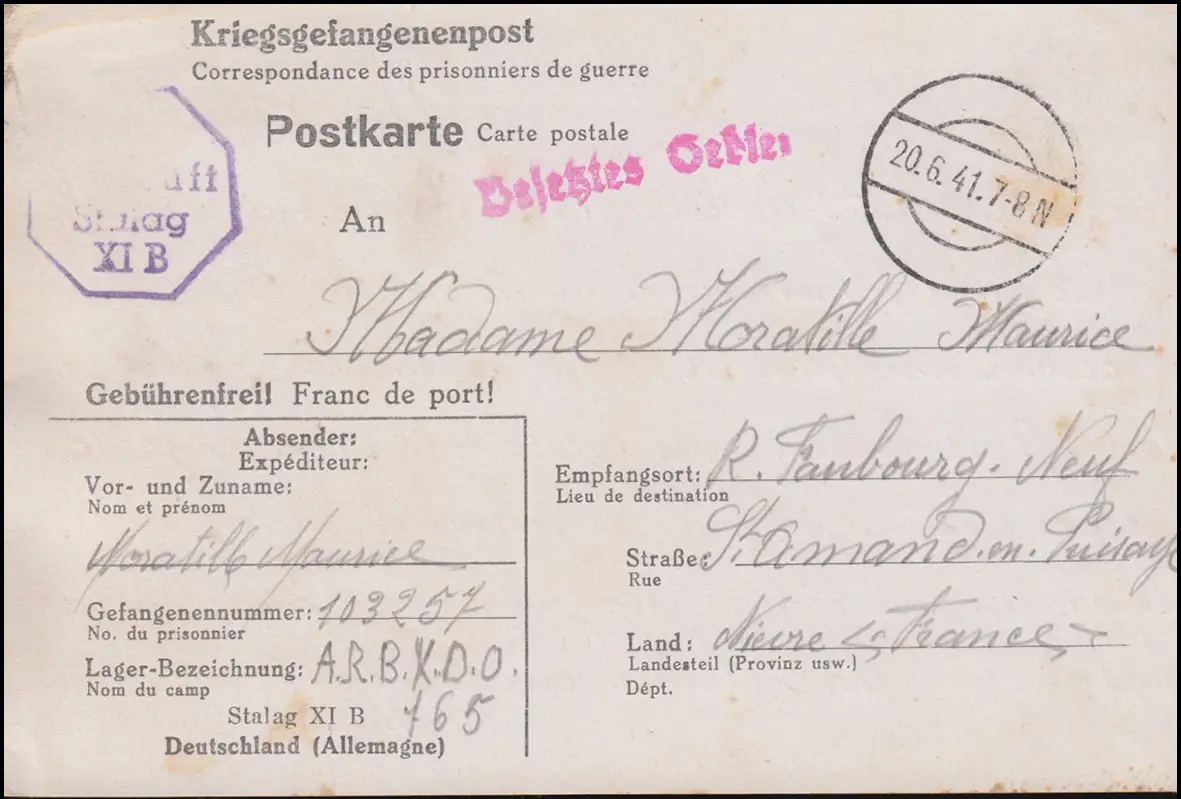 Kriegsgefangenenpost
Correspondance des prisonniers de guerre
Postkarte Carte postale
Stalag
XI B
20.6.41.7-8N
An
Madame Moratille Maurice
Gebührenfrei! Franc de port!
Absender:
Expéditeur:
Vor- und Zuname:
Nom et prénom
Moratille Maurice
Gefangenennummer: 103257
No. du prisonnier
Lager-Bezeichnung: A.R.B.K.D.O.
Nom du camp
Stalag XI B 765
Deutschland (Allemagne)
Empfangsort: R. Faubourg. Neuf
Lieu de destination
Straße: St Amand. en. Puisaye
Rue
Land: Nievre France
Landesteil (Provinz usw.)
Dépt.